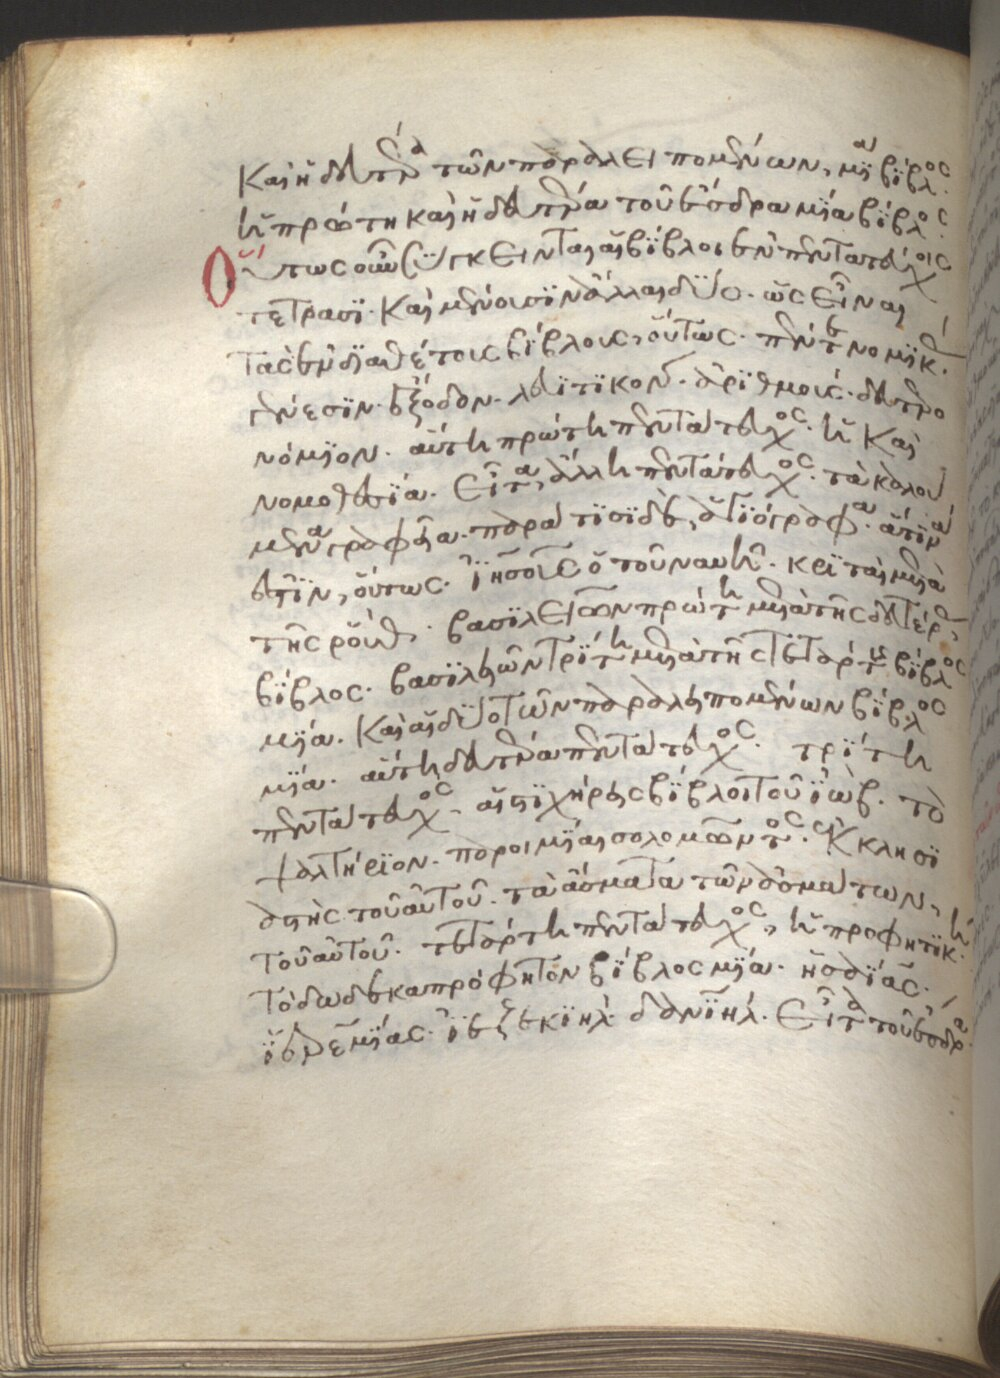 Καὶ ἡ δευτέρα τῶν παραλειπομένων, μία βίβλος.
ἡ πρώτη καὶ ἡ δευτέρα τοῦ ἔσδρα μία βίβλος.
Οὕτως οὖν σύγκεινται αἱ βίβλοι ἐν πεντατεύχοις
τέτρασι. Καὶ μένουσιν ἄλλαι δύο. ὡς εἶναι
τὰς ἐνδιαθέτοις βίβλοις, οὕτως. πέντε νομικ
γένεσιν. ἔξοδον. λευιτικον. ἀριθμοις. δευτερο
νόμιον. αὕτη πρώτη πεντάτευχος. ἡ καὶ
νομοθεσία. εἶτα, ἄλλη πεντάτευχος. τὰ καλού
μενα γραφεῖα. παρά τισι δὲ, ἁγιόγραφα. ἅτινα
ἐστιν, οὕτως. ἰησοῦς ὁ τοῦ ναυῆ. κριταὶ μετὰ
τῆς ῥούθ. βασιλειῶν πρώτη μετὰ τῆς δευτέρας
βίβλος. βασιλειῶν τρίτη μετὰ τῆς τετάρτης βίβλος
μία. Καὶ αἱ δύο τῶν παραλειπομένων βίβλος
μία. αὕτη δευτέρα πεντάτευχος. τρίτη
πεντάτευχος. αἱ στιχήρεις βίβλοι τοῦ ἰώβ. τὸ
ψαλτήριον. παροιμίαι σολομῶντος. ἐκκλησι
αστής τοῦ αὐτοῦ. τὰ ἄσματα τῶν ἀσμάτων,
τοῦ αὐτοῦ. τετάρτη πεντάτευχος, ἡ προφητικὴ.
Τὸ δωδεκαπρόφητον βίβλος μία. ἡσαΐας.
ἱερεμίας. ἰεζεκιήλ. δανιήλ. εἶτα τοῦ ἔσδρα.